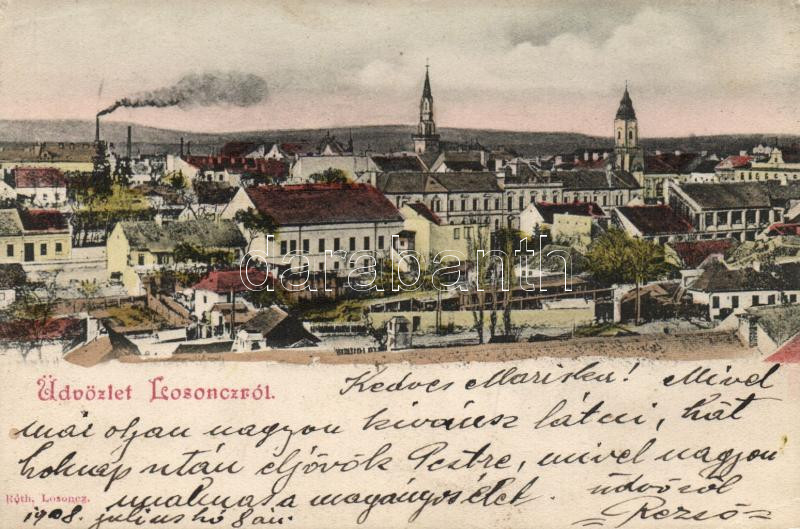 darabanth
Üdvözlet Losonczról.
Kedves Mariska! Mivel
már oljan nagyon kiváncsi látni, hát
holnap után eljövök Pestre, mivel nagyon
unalmas a magányos élet. üdvözöl
Róth, Losoncz.
1908. julius hó 8án. Rezső